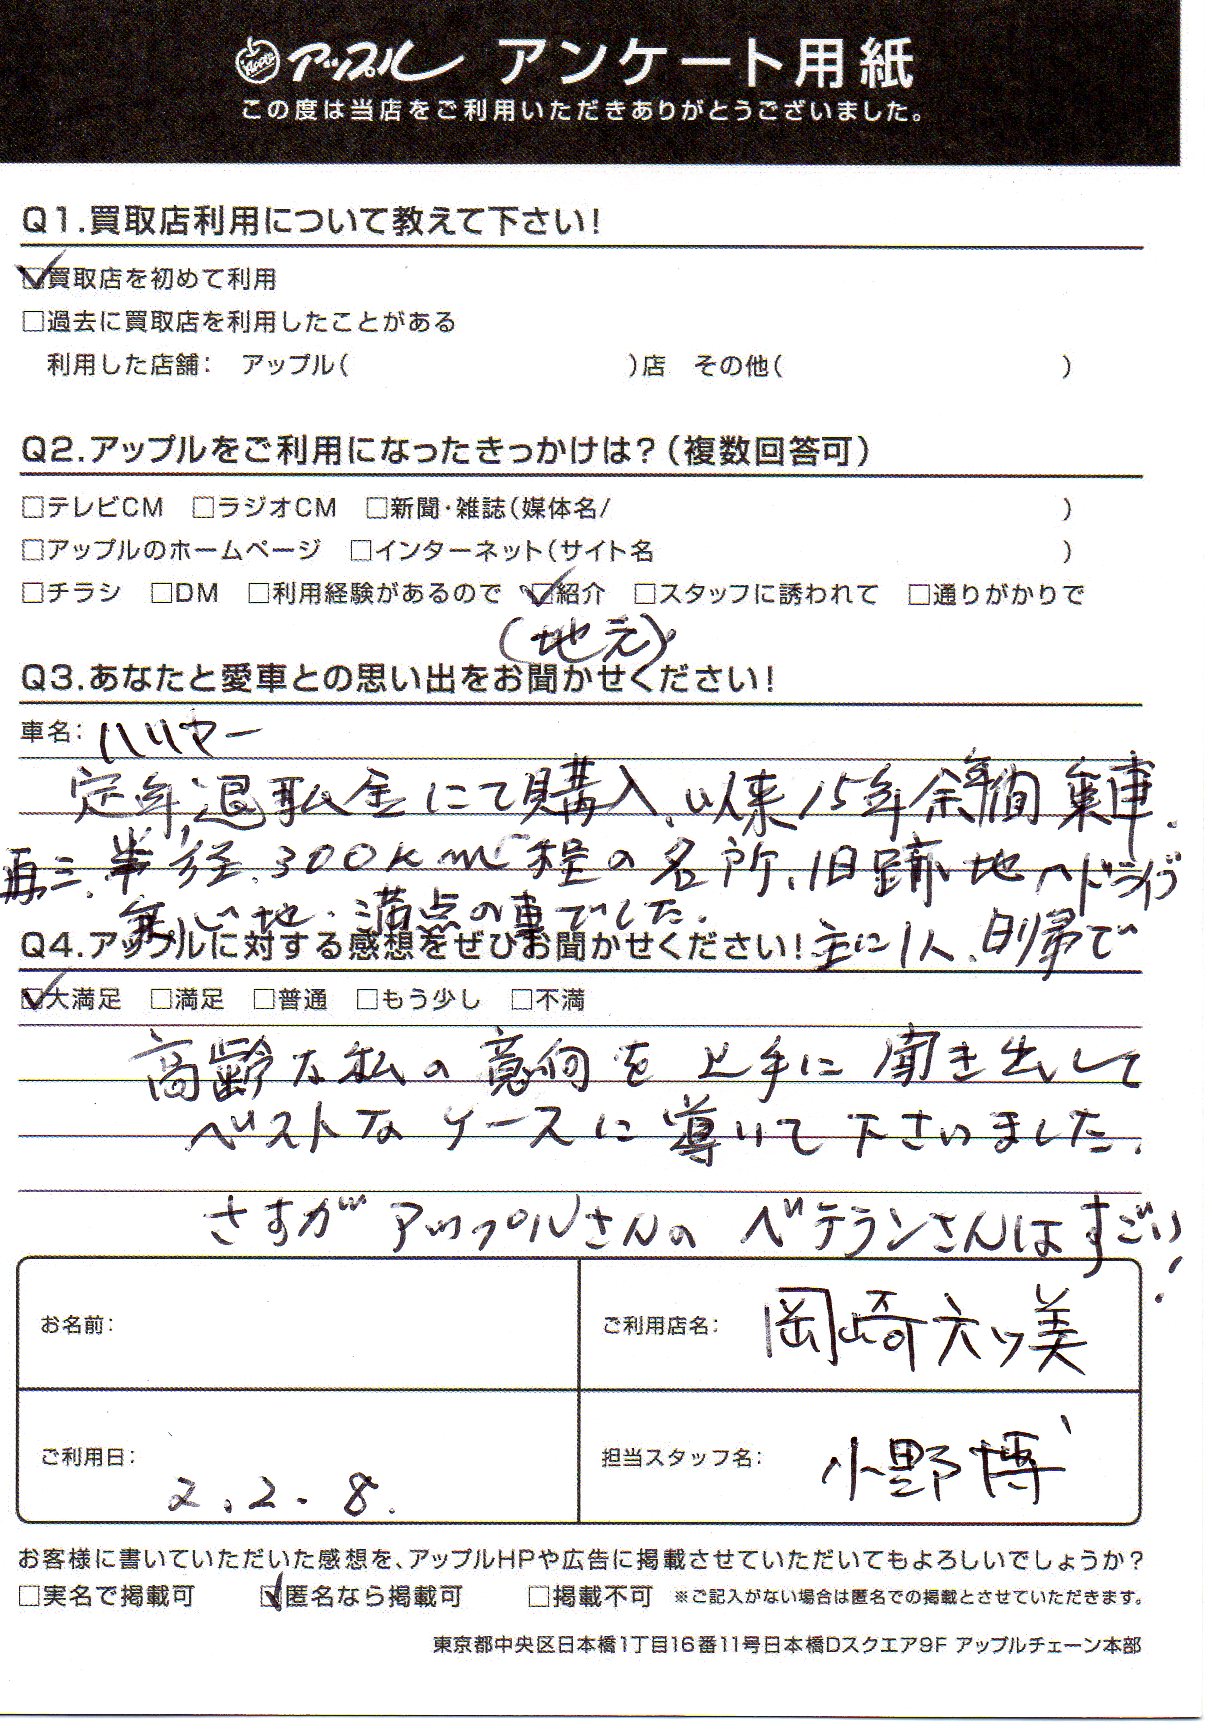 Apple アップル アンケート用紙
この度は当店をご利用いただきありがとうございました。
Q1.買取店利用について教えて下さい!
☑買取店を初めて利用
□過去に買取店を利用したことがある
利用した店舗: アップル( )店 その他( )
Q2.アップルをご利用になったきっかけは?(複数回答可)
□テレビCM □ラジオCM □新聞・雑誌(媒体名/ )
□アップルのホームページ □インターネット(サイト名 )
□チラシ □DM □利用経験があるので ☑紹介 □スタッフに誘われて □通りがかりで
(地元)
Q3.あなたと愛車との思い出をお聞かせください!
車名: ハリヤー
定年退職金にて購入、以来15年余年間乗車.
再三、半径、300km程の名所、旧跡地へドライブ
乗心地、満点の車でした.
Q4.アップルに対する感想をぜひお聞かせください! 主に1人、日帰で
☑大満足 □満足 □普通 □もう少し □不満
高齢な私の意向を上手に聞き出して
ベストなケースに導いて下さいました.
さすがアップルさんのベテランさんはすごい!
お名前:
ご利用店名: 岡崎六ッ美
ご利用日: 2.2.8.
担当スタッフ名: 小野博
お客様に書いていただいた感想を、アップルHPや広告に掲載させていただいてもよろしいでしょうか?
□実名で掲載可 ☑匿名なら掲載可 □掲載不可 ※ご記入がない場合は匿名での掲載とさせていただきます。
東京都中央区日本橋1丁目16番11号日本橋Dスクエア9F アップルチェーン本部